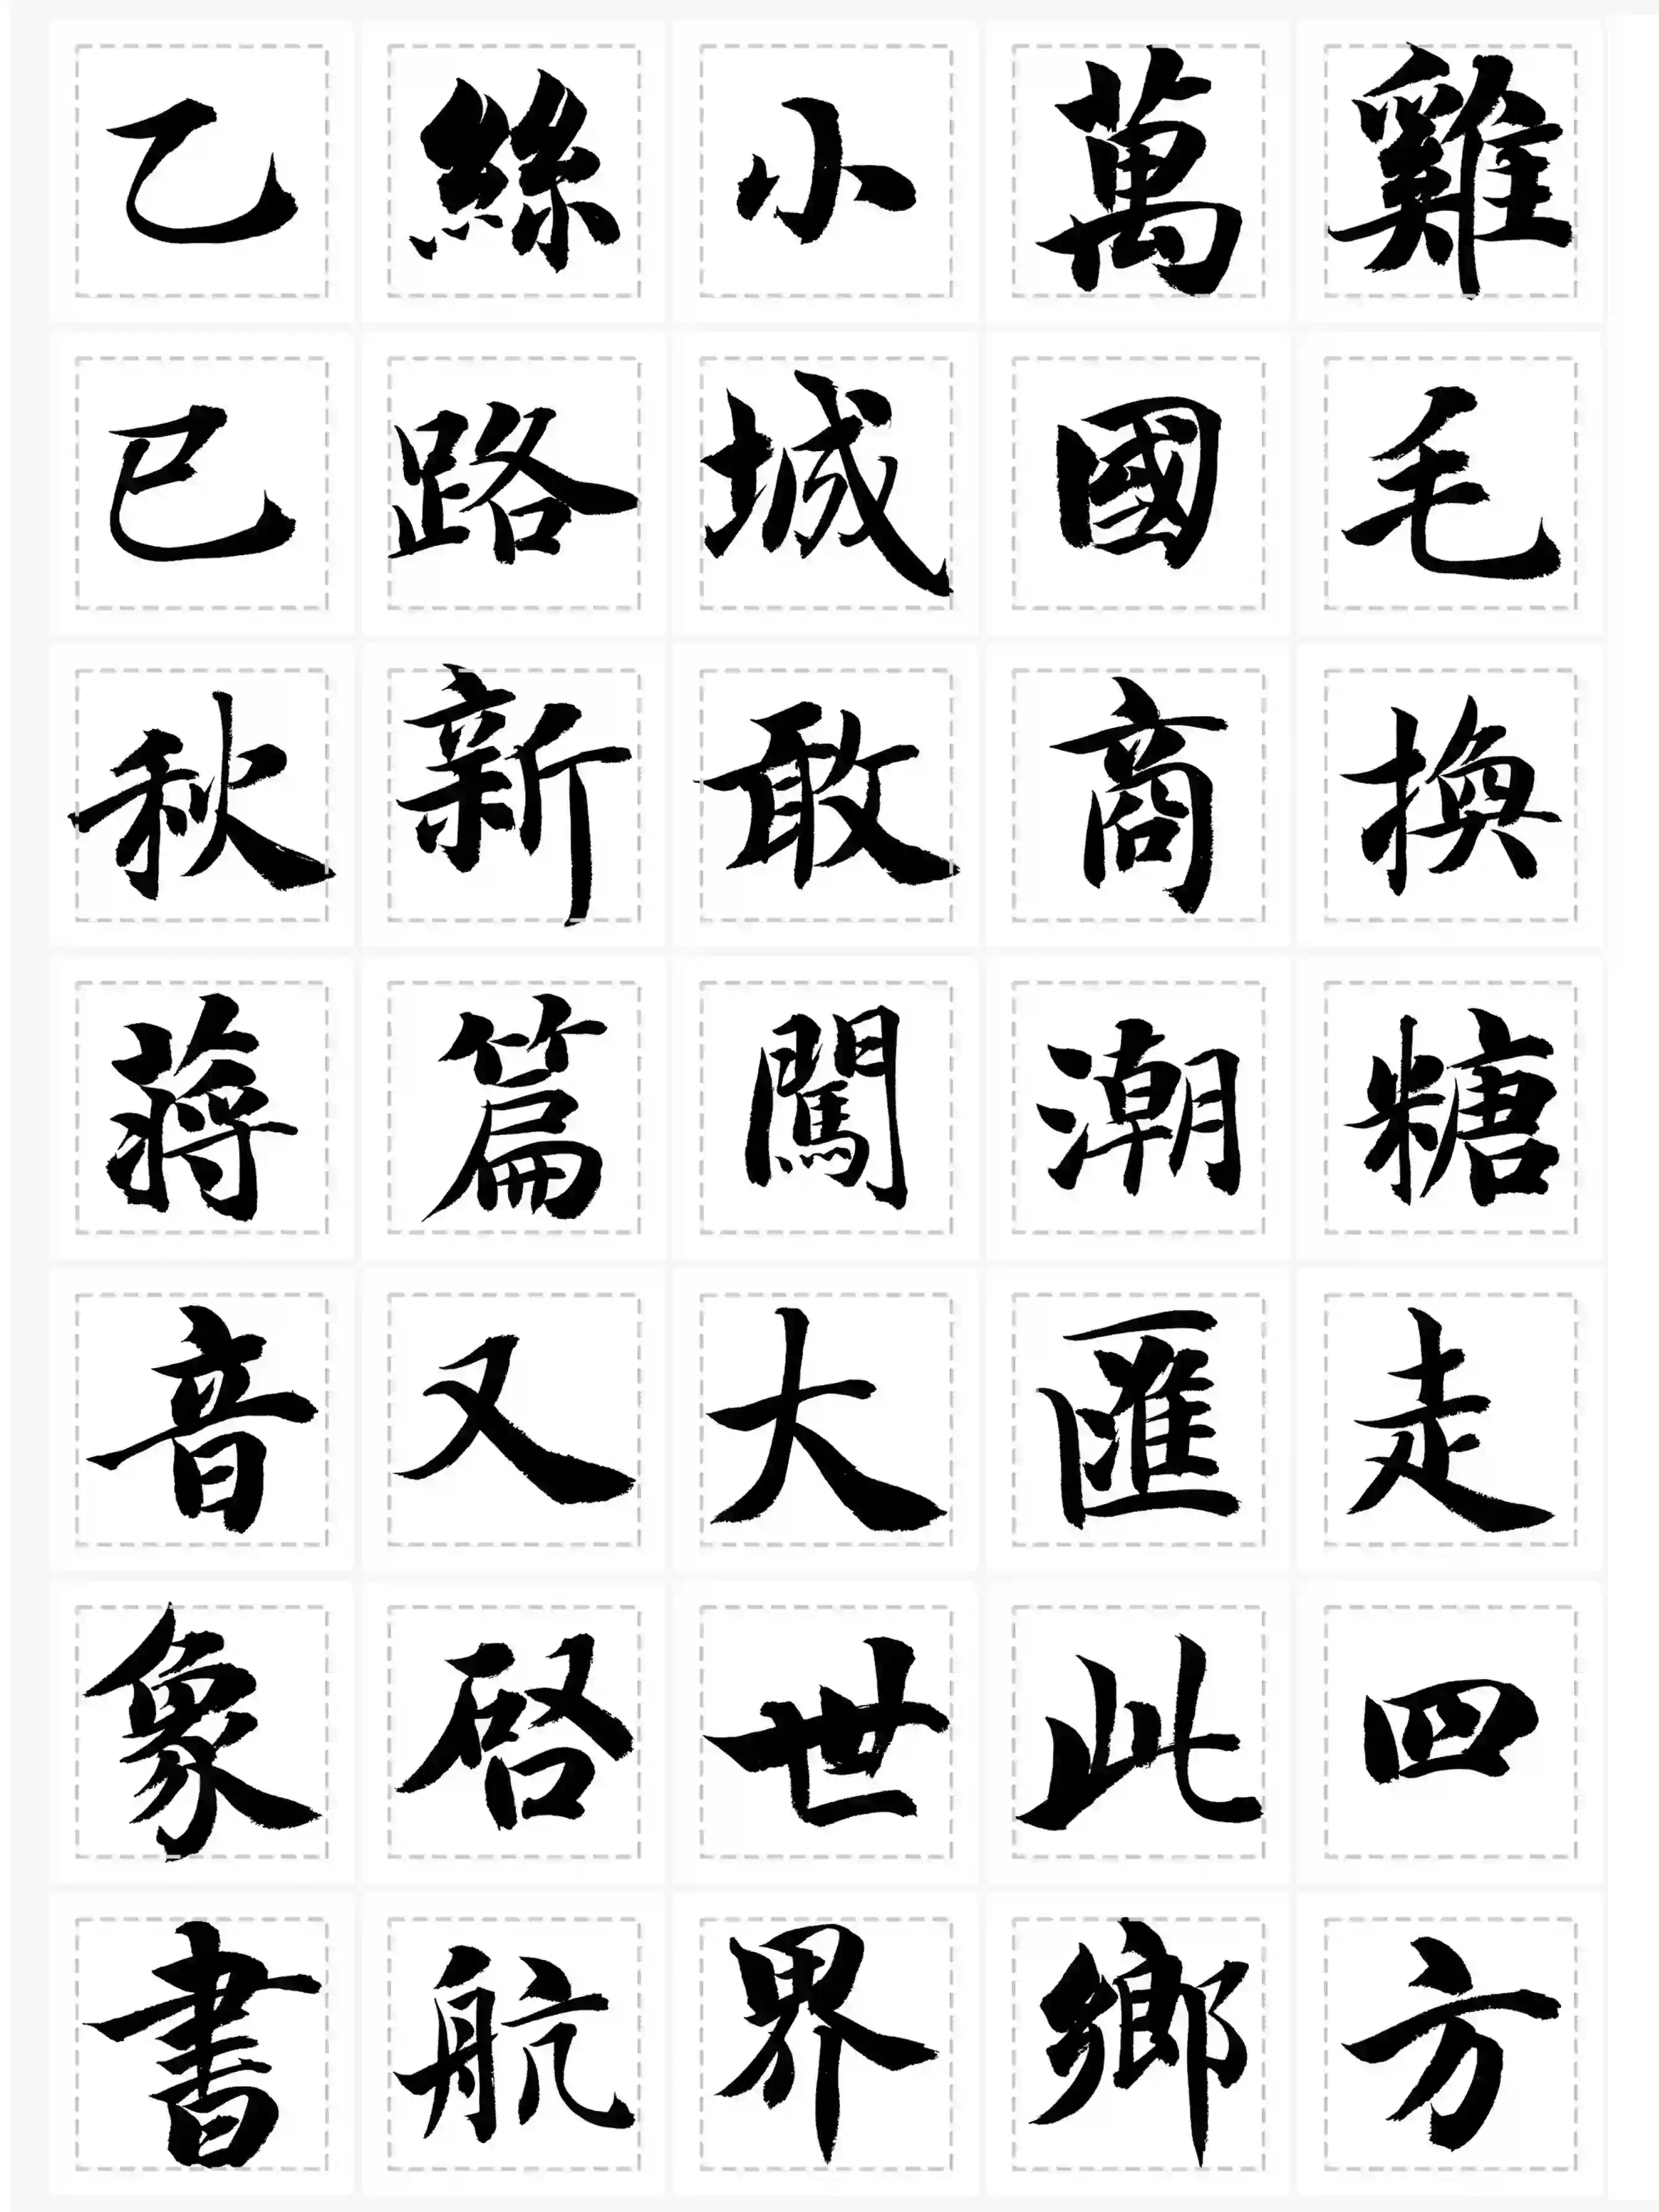 雞毛換糖走四方
萬國商潮匯此鄉
小城敢闖大世界
絲路新篇又啓航
乙巳秋蔣音象書